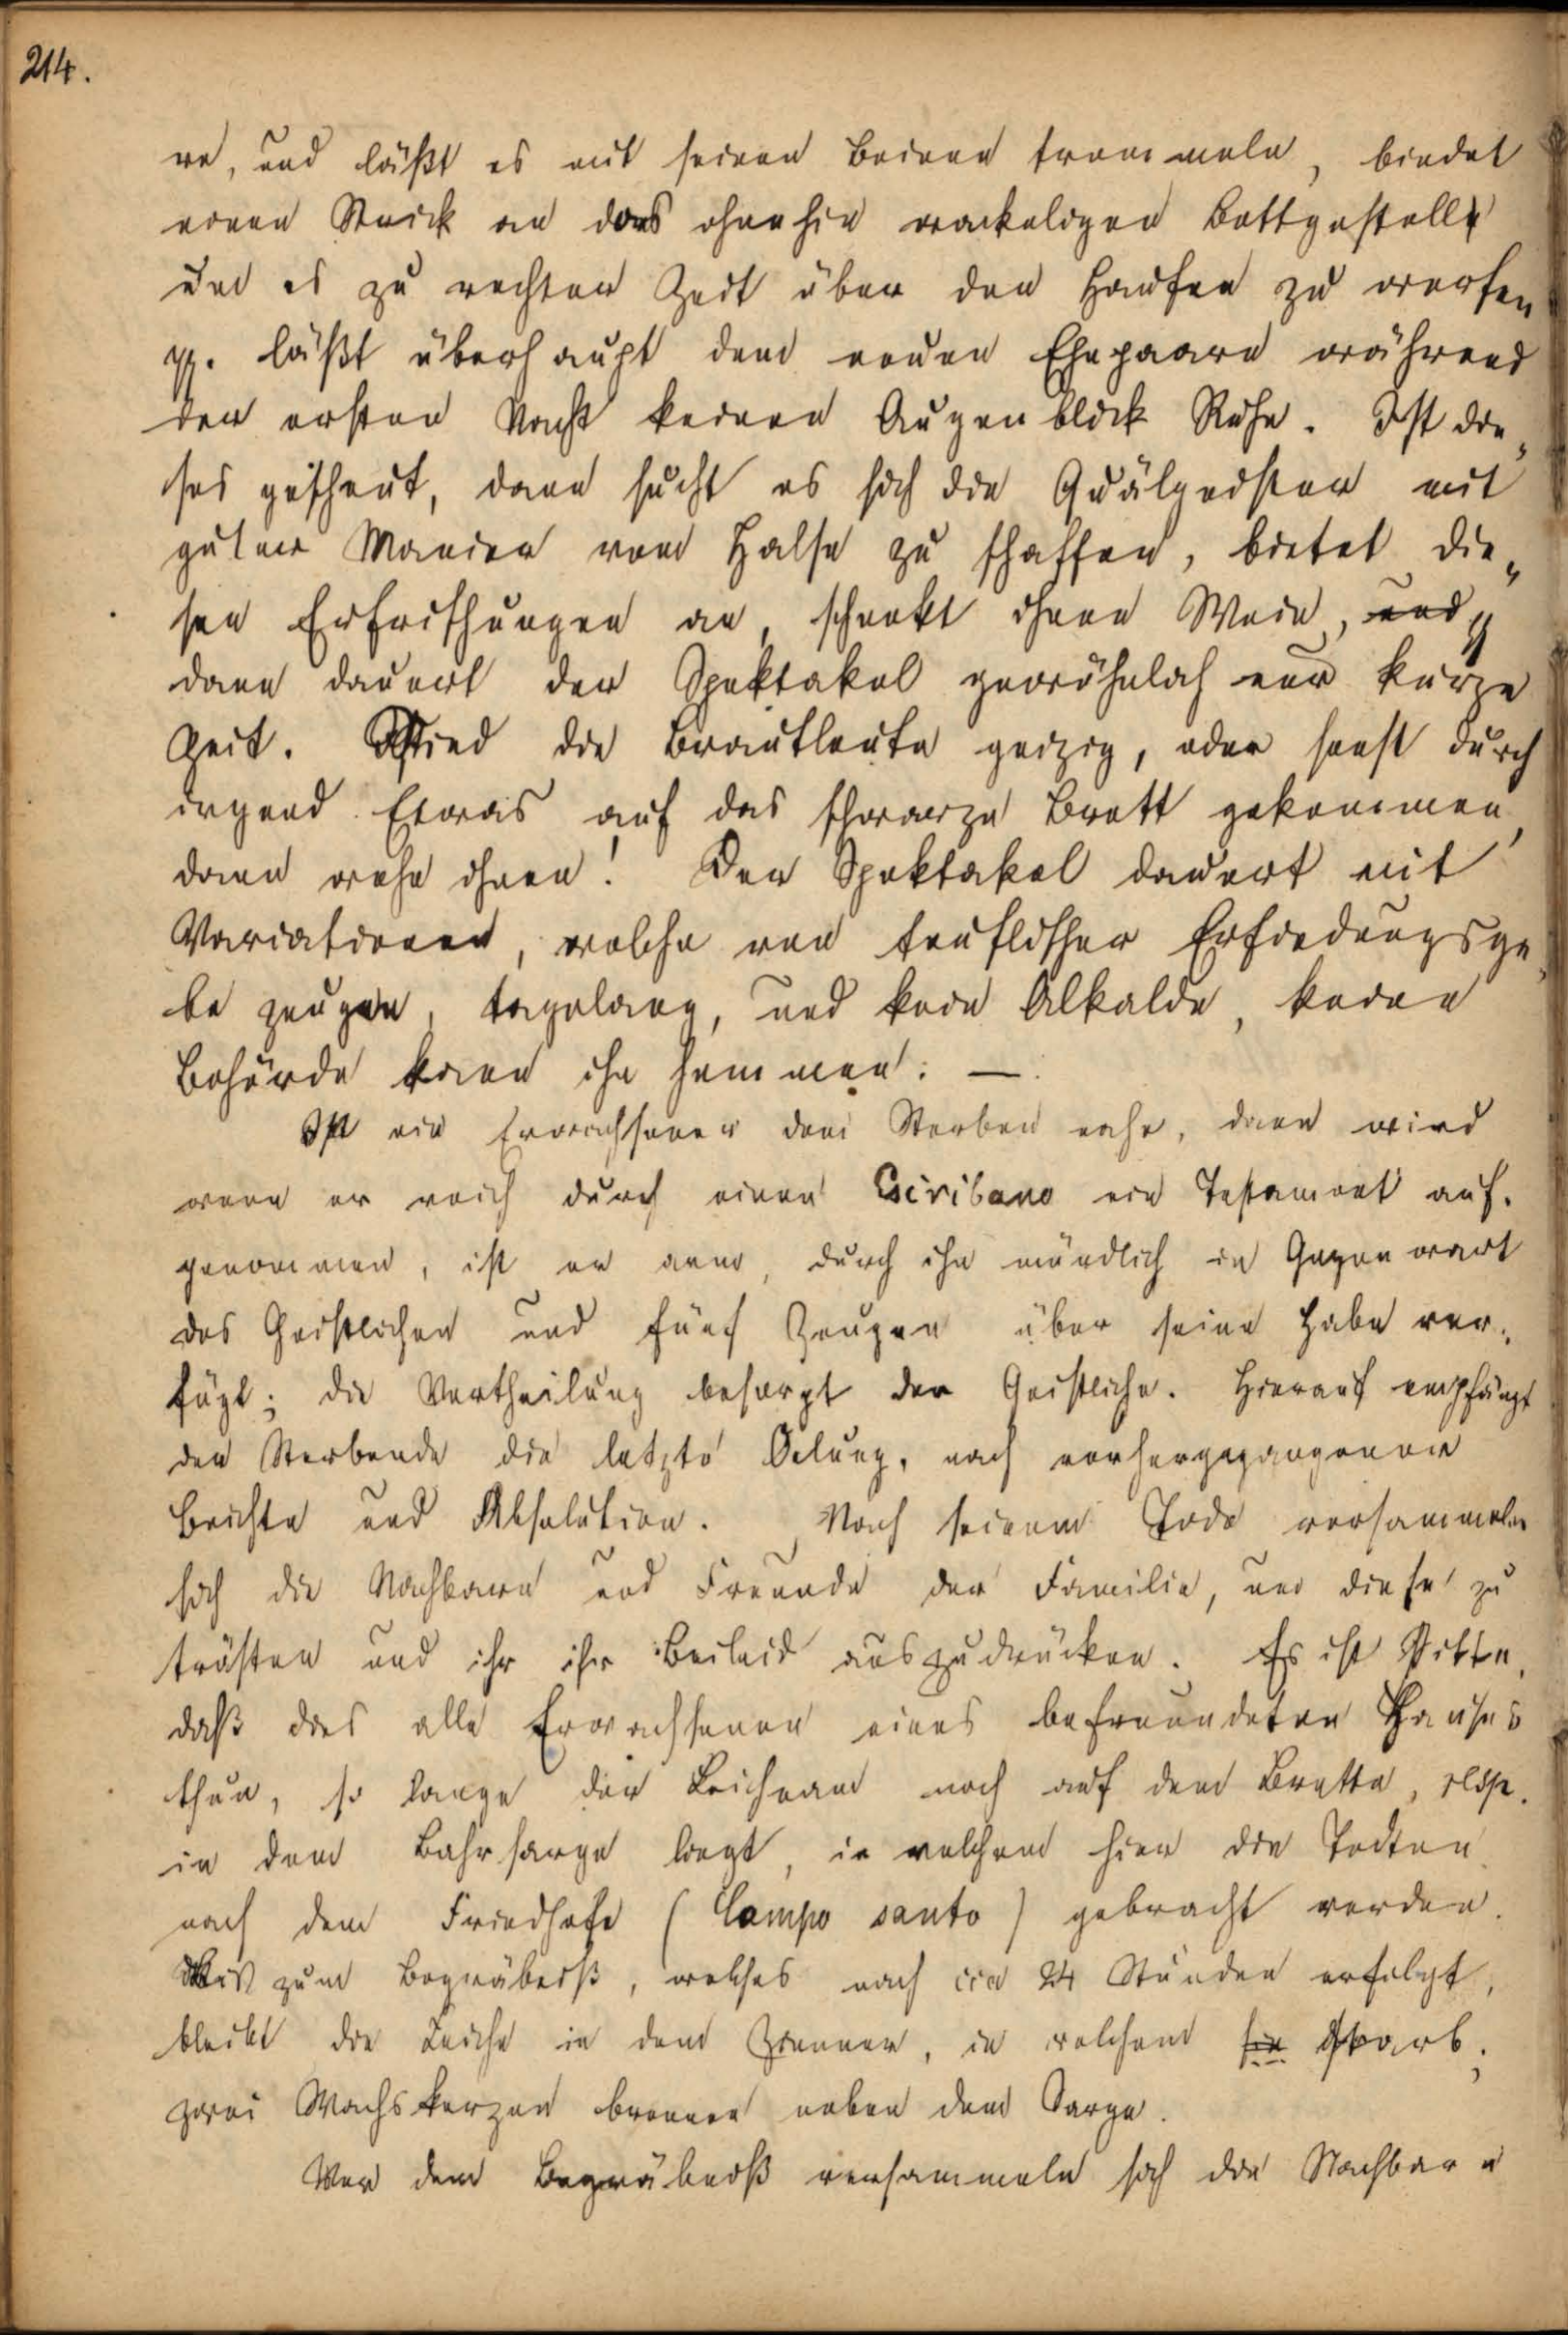 214.
re, und läßt es mit seinen Beinen trommeln, bindet
einen Strick an das ohnehin wackeligen Bettgestelle
um es zu rechter Zeit über den Haufen zu werfen
pp. läßt überhaupt dem neuen Ehepaare während
der ersten Nacht keinen Augenblick Ruhe. Ist die„
ses gescheut, dann sucht es sich die Quälgeister mit
guter Manier vom Halse zu schaffen, bietet die„
sen Erfrischungen an, schenkt ihnen Wein, und
dann dauert der Spektakel gewöhnlich nur kurze
Zeit. Sind die Brautleute geizig, oder sonst durch
irgend Etwas auf das schwarze Brett gekommen,
dann wehe ihnen! Der Spektakel dauert mit
Variationen, welche von teuflischer Erfindungsga„
be zeugen, tagelang, und kein Alkalde, keine
Behörde kann ihn hemmen. —
Ist ein Erwachsener dem Sterben nahe, dann wird
wenn er reich durch einen Escribano ein Testament auf„
genommen, ist er arm, durch ihn mündlich in Gegenwart
des Geistlichen und fünf Zeugen über seine Habe ver„
fügt; die Vertheilung besorgt der Geistliche. Hierauf empfängt
der Sterbende die letzte Oelung, nach vorhergegangener
Beichte und Absolution. Nach seinem Tode versammeln
sich die Nachbarn und Freunde der Familie, um diese zu
trösten und ihr ihr Beileid auszudrücken. Es ist Sitte,
daß dies alle Erwachsenen eines befreundeten Hauses
thun, so lange der Leichnam noch auf dem Brette, resp.
in dem Bahrsarge liegt, in welchem hier die Todten
nach dem Friedhofe (Campo santo) gebracht werden.
Bis zum Begräbniß, welches nach cca 24 Stunden erfolgt,
bleibt die Leiche in dem Zimmer, in welchem sie starb;
zwei Wachskerzen brennen neben dem Sarge.
Vor dem Begräbniß versammeln sich die Nachbarn